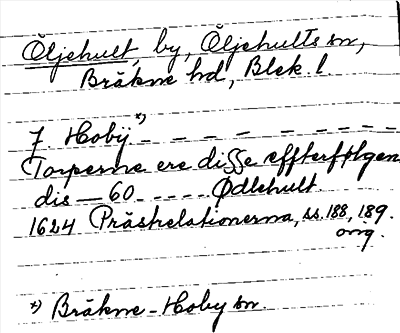 Öljehult, by, Öljehults sn,
Bräkne hd, Blek. l.
J. Hoby *) — — — — — — —
Torperne ere disse effterfølgen
dis — 60 - - - - - Ødlehult
1624 Prästrelationerna, ss. 188, 189.
orig.
*) Bräkne-Hoby sn.